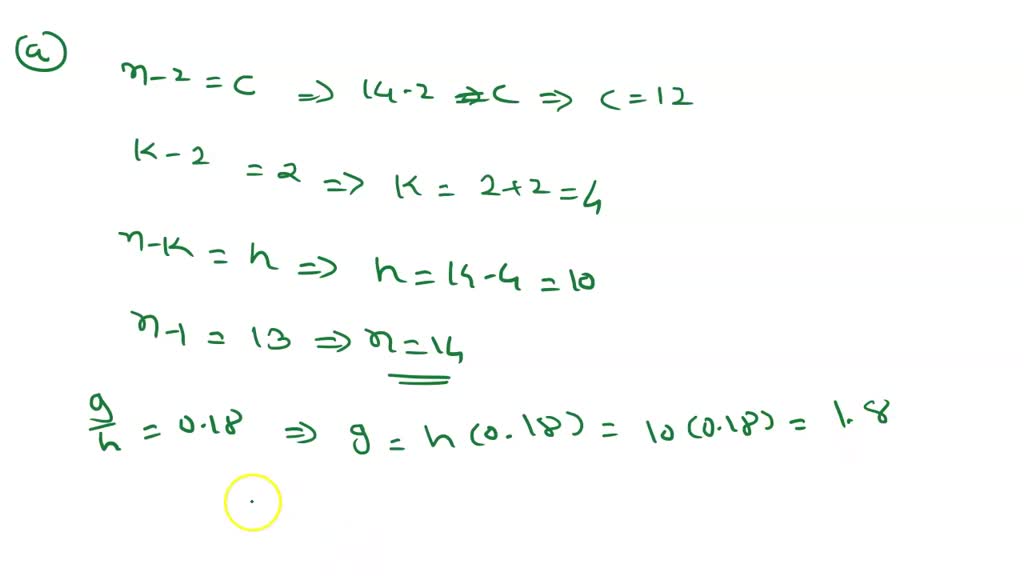 (a)
n-2 = c ⇒ 14-2 ⇒ c ⇒ c = 12
K-2 = 2 ⇒ K = 2+2 = 4
n-K = h ⇒ h = 14-4 = 10
n-1 = 13 ⇒ n = 14
g/h = 0.18 ⇒ g = h(0.18) = 10(0.18) = 1.8